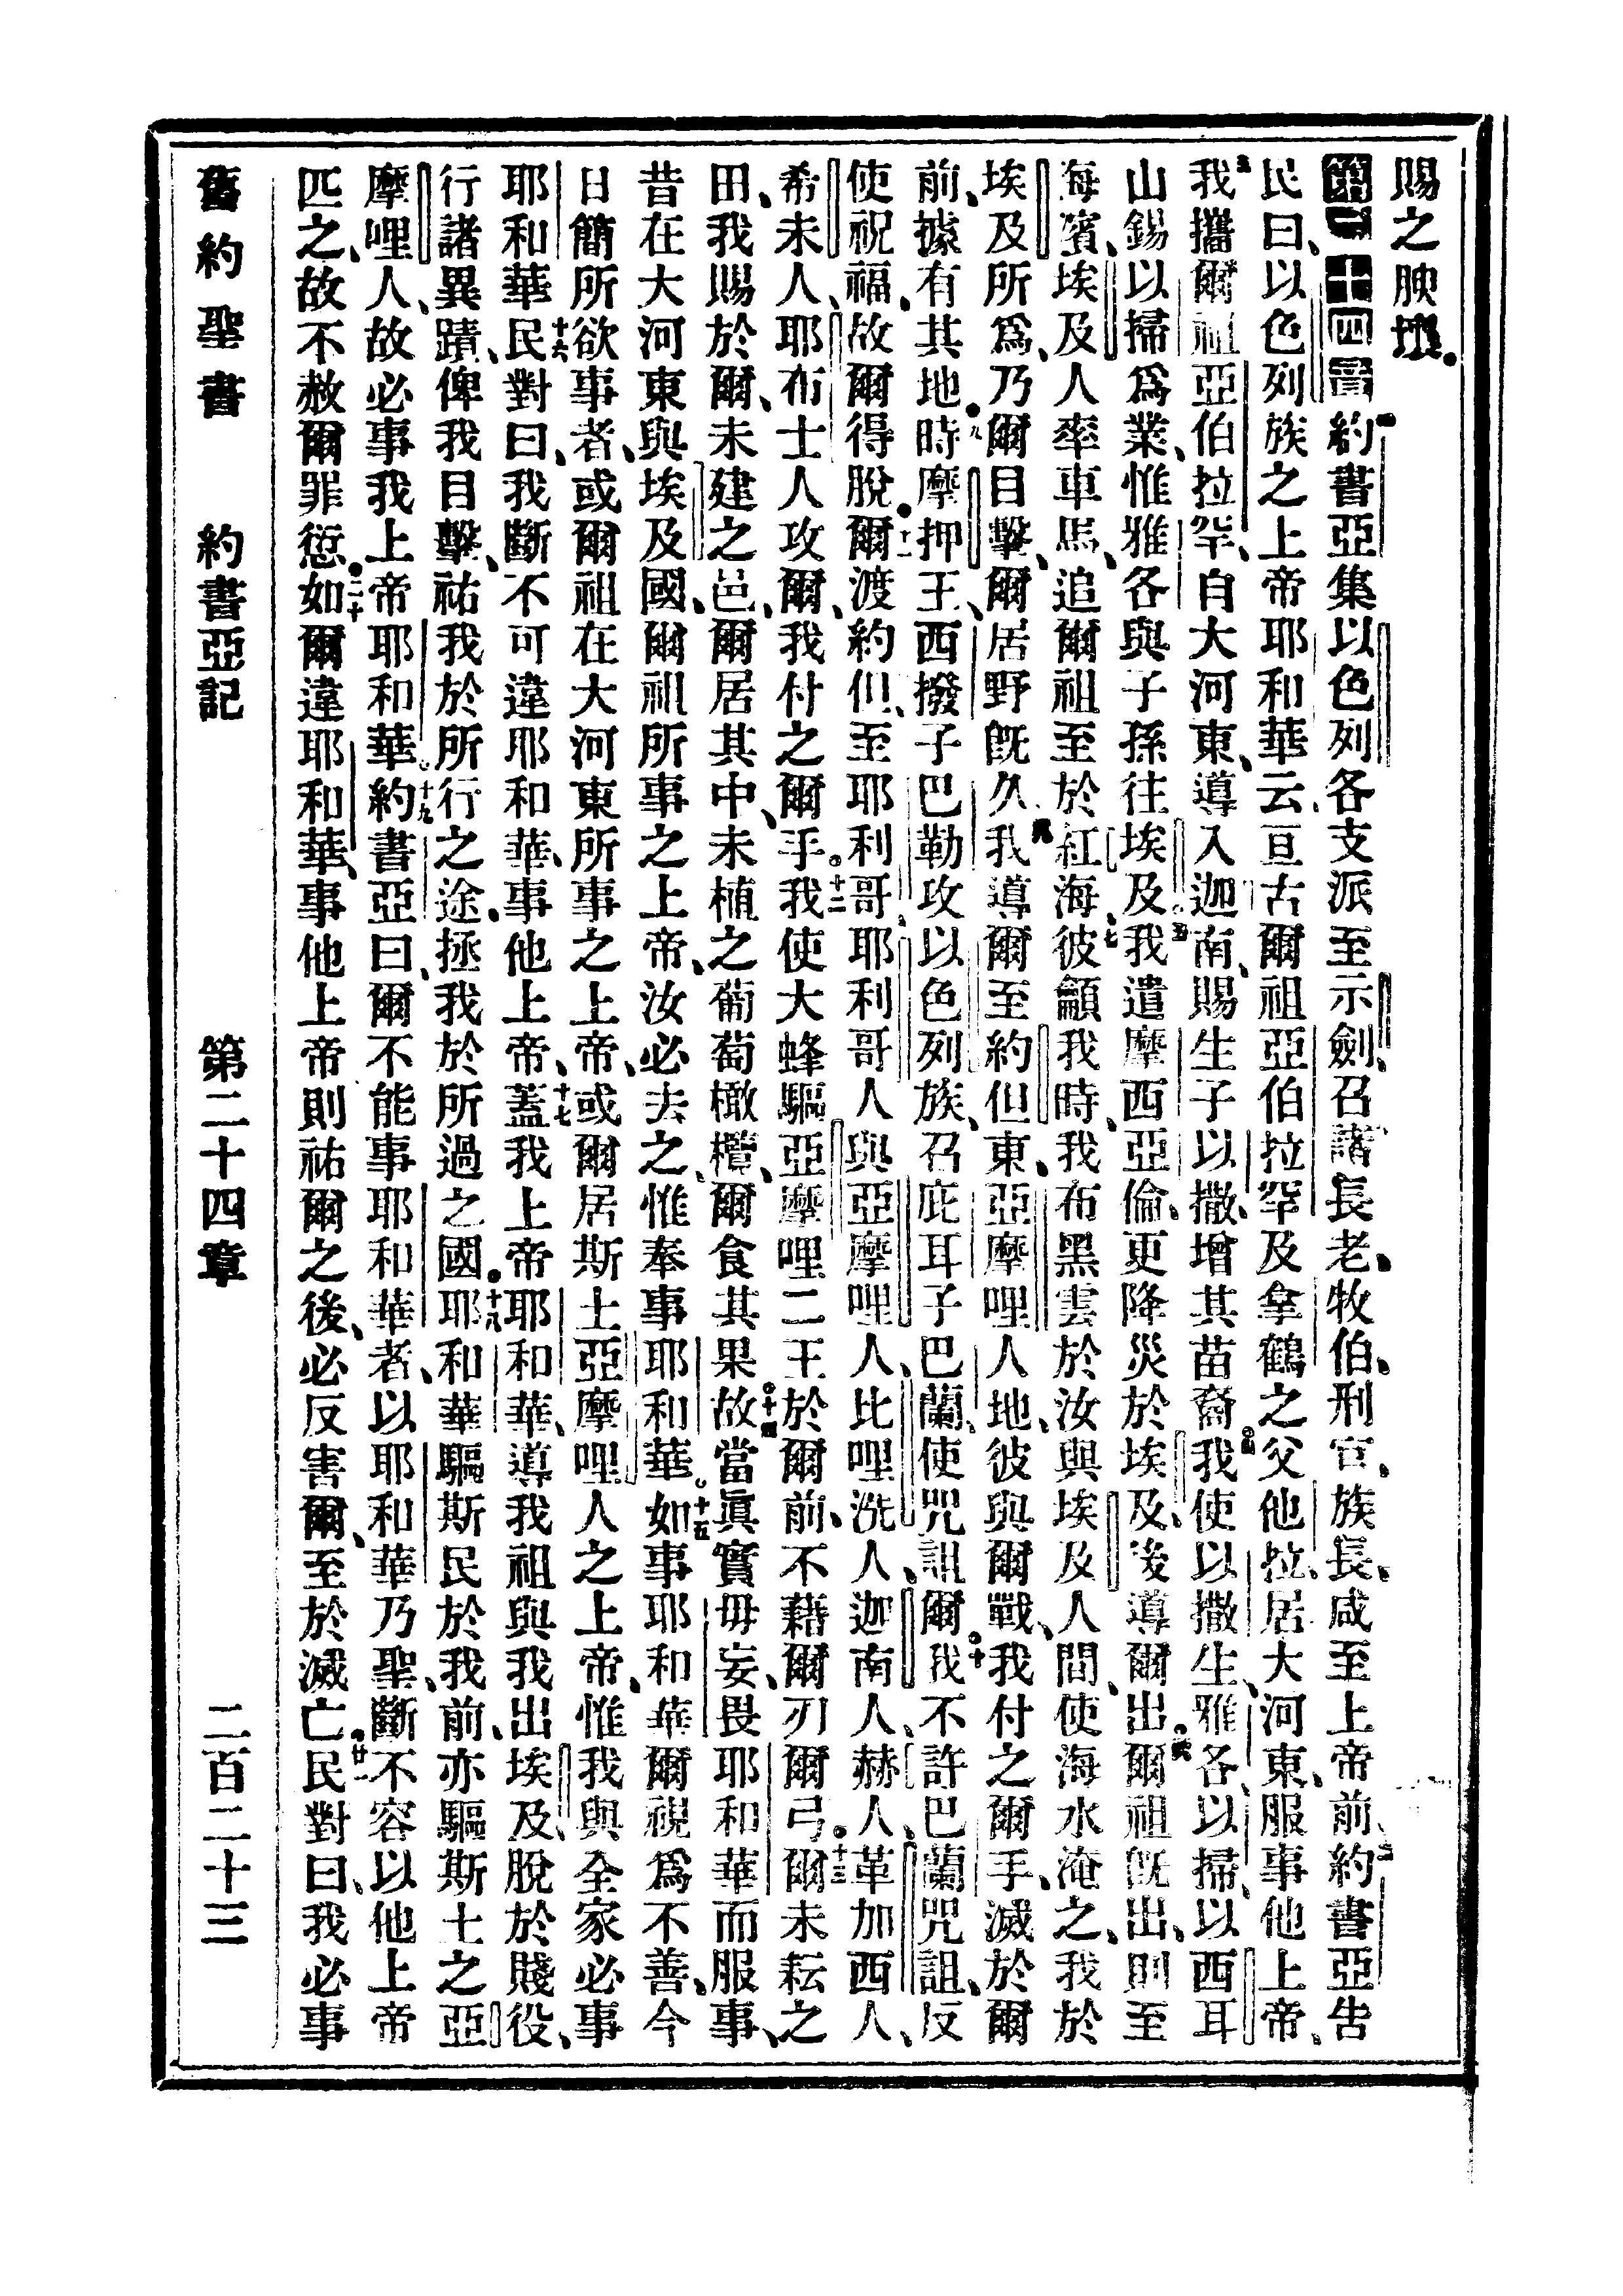 賜之腴壤。
第二十四章 約書亞集以色列各支派至示劍、召諸長老、牧伯、刑官、族長、咸至上帝前、二約書亞告
民曰、以色列族之上帝耶和華云、亘古爾祖亞伯拉罕及拿鶴之父他拉、居大河東、服事他上帝、
三我攜爾祖亞伯拉罕、自大河東、導入迦南、賜生子以撒、增其苗裔、四我使以撒生雅各以掃、以西耳
山錫以掃爲業、惟雅各與子孫往埃及。五我遣摩西亞倫、更降災於埃及、後導爾出。六爾祖既出、則至
海濱、埃及人率車馬、追爾祖至於紅海、七彼籲我時、我布黑雲於汝與埃及人間、使海水淹之、我於
埃及所爲、乃爾目擊、爾居野既久、八我導爾至約但東、亞摩哩人地、彼與爾戰、我付之爾手、滅於爾
前、據有其地。九時摩押王、西撥子巴勒攻以色列族、召庇耳子巴蘭、使咒詛爾、十我不許巴蘭咒詛、反
使祝福、故爾得脫。十一爾渡約但、至耶利哥、耶利哥人與亞摩哩人、比哩洗人、迦南人、赫人、革加西人、
希未人、耶布士人攻爾、我付之爾手。十二我使大蜂驅亞摩哩二王於爾前、不藉爾刃爾弓。十三爾未耘之
田、我賜於爾、未建之邑、爾居其中、未植之葡萄橄欖、爾食其果。十四故當眞實毋妄、畏耶和華而服事、
昔在大河東與埃及國、爾祖所事之上帝、汝必去之、惟奉事耶和華。十五如事耶和華爾視爲不善、今
日簡所欲事者、或爾祖在大河東所事之上帝、或爾居斯土亞摩哩人之上帝、惟我與全家必事
耶和華。十六民對曰、我斷不可違耶和華、事他上帝、十七蓋我上帝耶和華、導我祖與我出埃及、脫於賤役、
行諸異蹟、俾我目擊、祐我於所行之途、拯我於所過之國。十八耶和華驅斯民於我前、亦驅斯土之亞
摩哩人、故必事我上帝耶和華。十九約書亞曰、爾不能事耶和華者、以耶和華乃聖、斷不容以他上帝
匹之、故不赦爾罪愆。二十如爾違耶和華、事他上帝、則祐爾之後、必反害爾、至於滅亡。廿一民對曰、我必事
舊約聖書 約書亞記 第二十四章 二百二十三